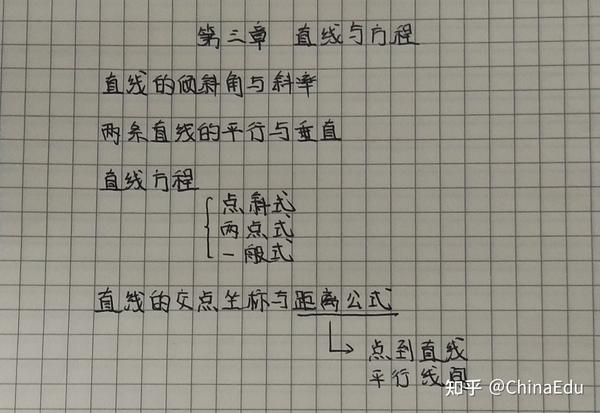 第三章 直线与方程
直线的倾斜角与斜率
两条直线的平行与垂直
直线方程
点斜式
两点式
一般式
直线的交点坐标与距离公式
点到直线
平行线间
知乎 @ChinaEdu